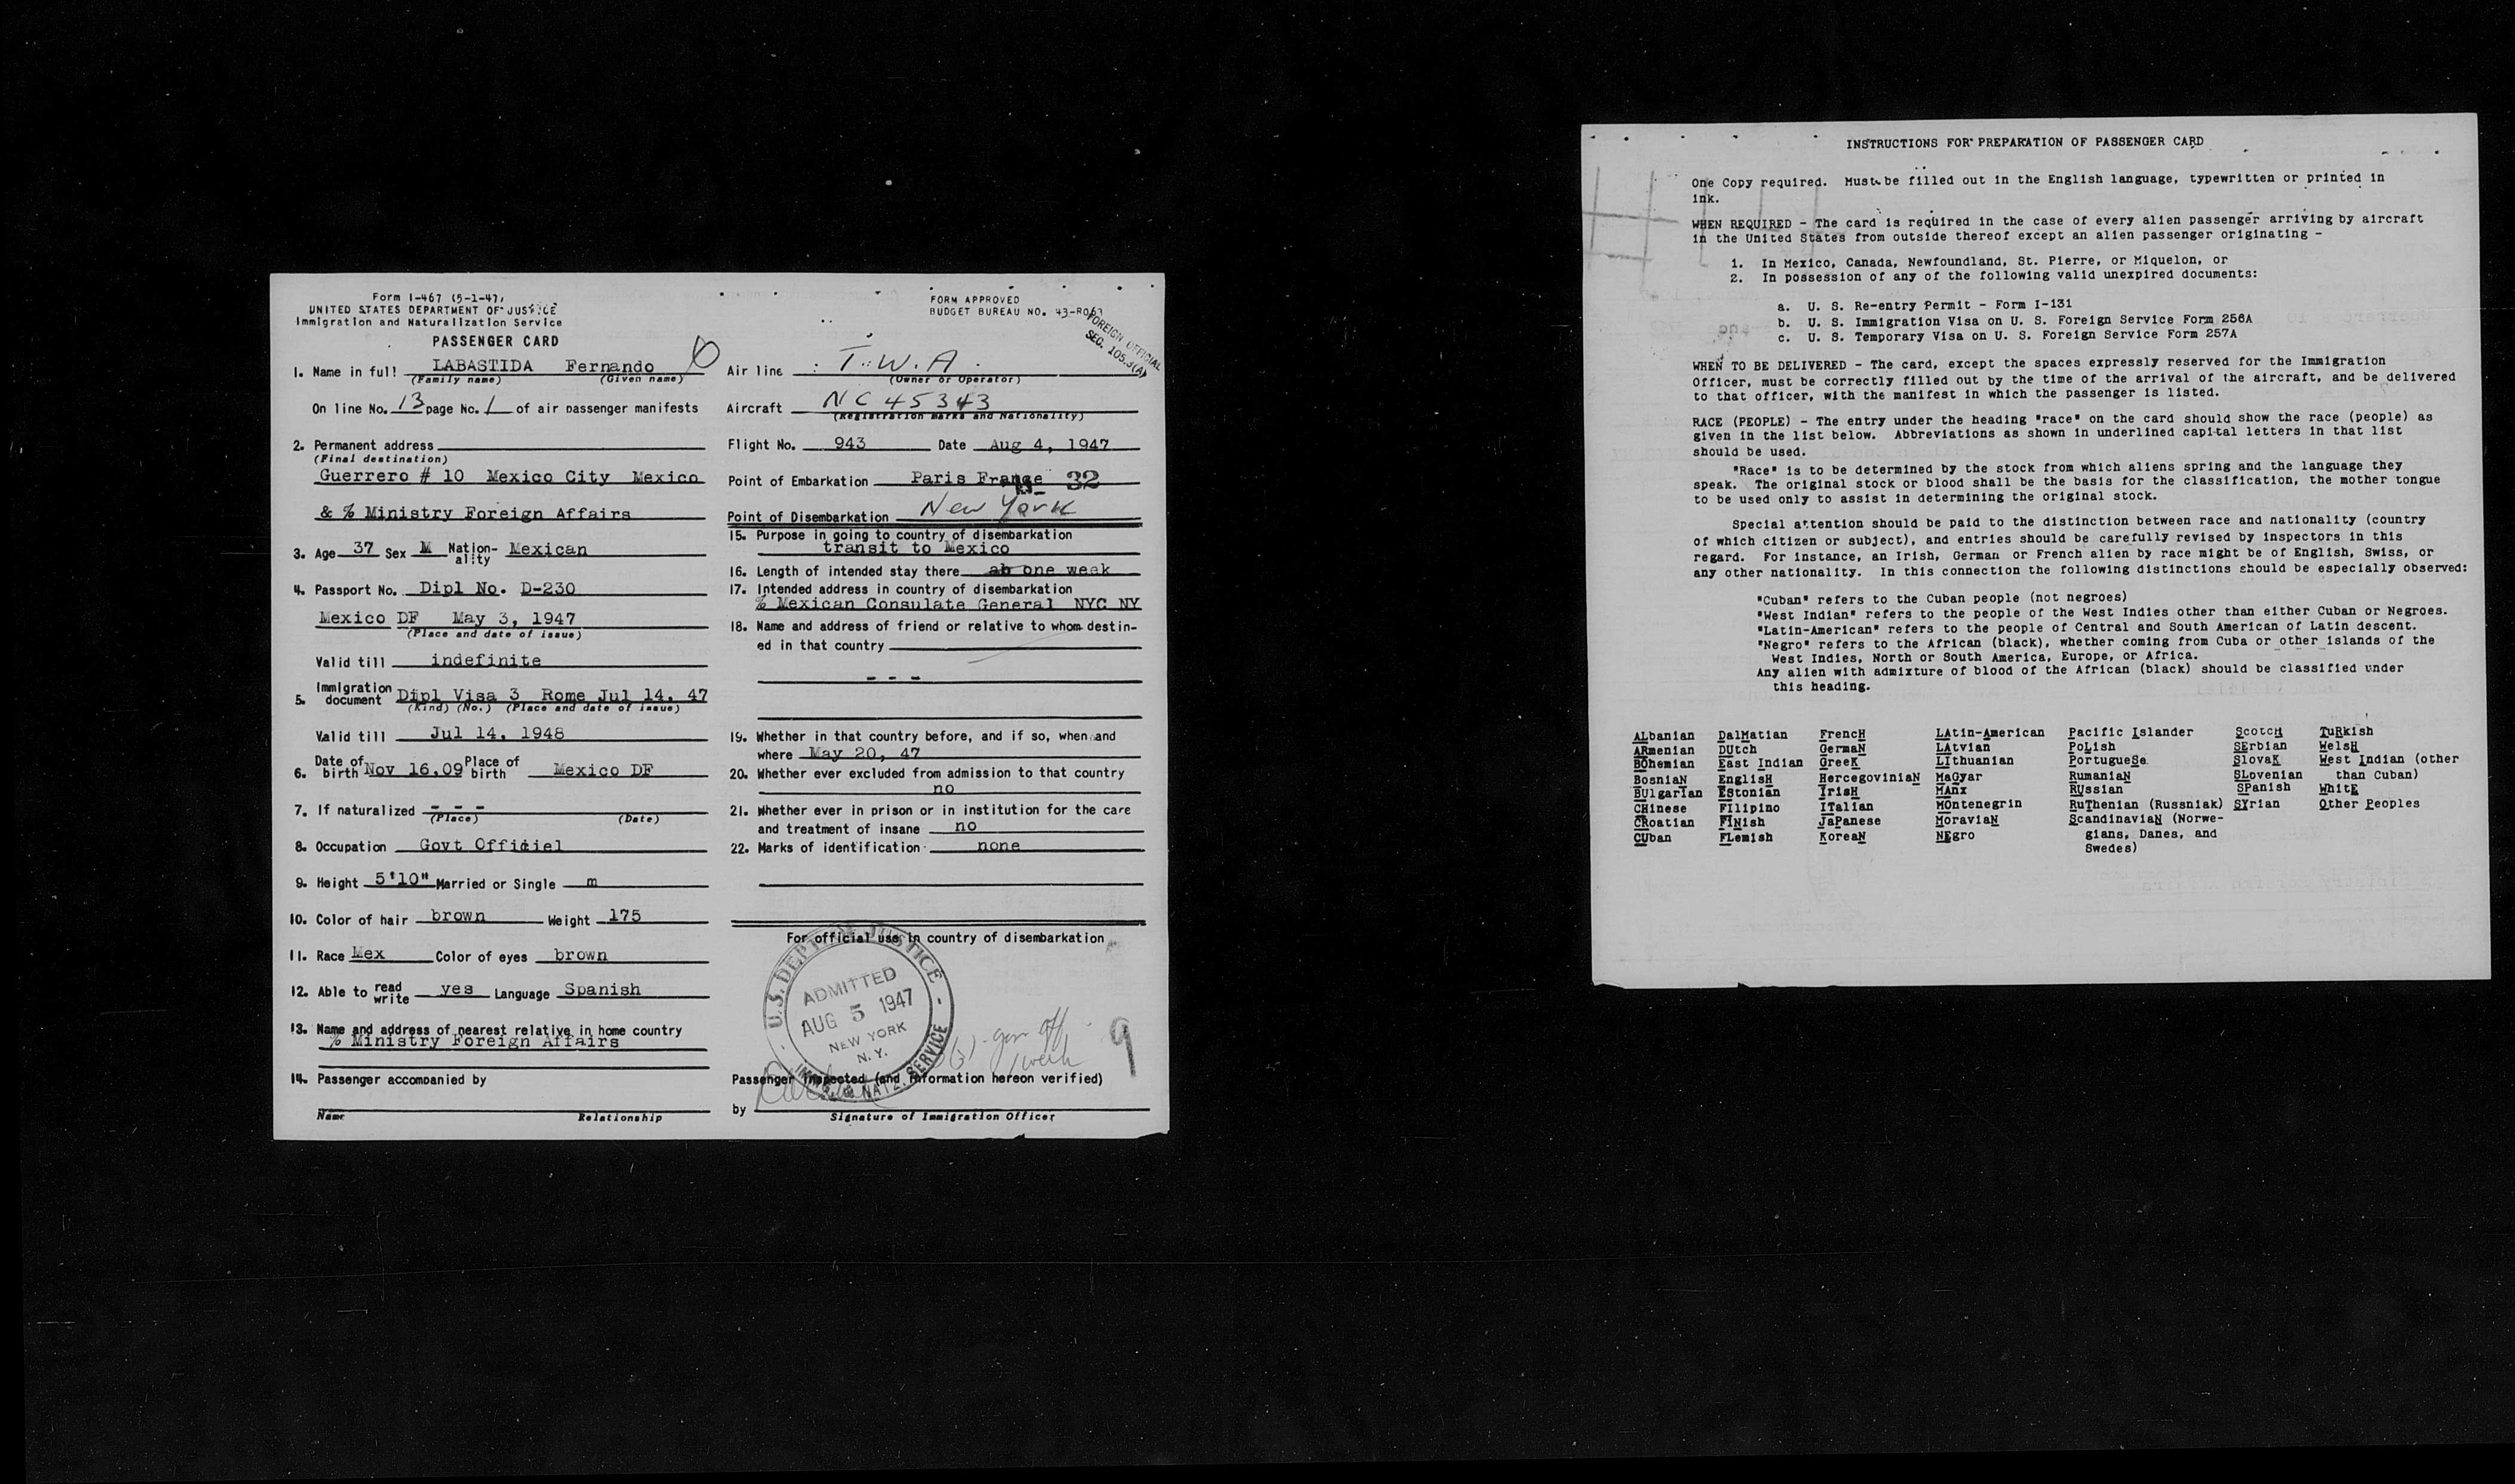 Form I-467 (5-1-47)
UNITED STATES DEPARTMENT OF JUSTICE
Immigration and Naturalization Service
PASSENGER CARD
FORM APPROVED
BUDGET BUREAU NO. 43-R063
FOREIGN OFFICIAL
SEC. 105.3(A)
1. Name in full LABASTIDA Fernando
(Family name) (Given name)
On line No. 13 page No. 1 of air passenger manifests
2. Permanent address
(Final destination)
Guerrero # 10 Mexico City Mexico
& % Ministry Foreign Affairs
3. Age 37 Sex M Nation-ality Mexican
4. Passport No. Dipl No. D-230
Mexico DF May 3, 1947
(Place and date of issue)
Valid till indefinite
5. Immigration document Dipl Visa 3 Rome Jul 14. 47
(Kind) (No.) (Place and date of issue)
Valid till Jul 14. 1948
6. Date of birth Nov 16.09 Place of birth Mexico DF
7. If naturalized - - -
(Place) (Date)
8. Occupation Govt Officiel
9. Height 5'10" Married or Single m
10. Color of hair brown Weight 175
11. Race Mex Color of eyes brown
12. Able to read write yes Language Spanish
13. Name and address of nearest relative in home country
% Ministry Foreign Affairs
14. Passenger accompanied by
Name Relationship
Air line T.W.A.
(Owner or Operator)
Aircraft NC 45343
(Registration marks and Nationality)
Flight No. 943 Date Aug 4, 1947
Point of Embarkation Paris France 32
Point of Disembarkation New York
15. Purpose in going to country of disembarkation
transit to Mexico
16. Length of intended stay there ab one week
17. Intended address in country of disembarkation
% Mexican Consulate General NYC NY
18. Name and address of friend or relative to whom destin-
ed in that country
- - -
19. Whether in that country before, and if so, when and
where May 20, 47
20. Whether ever excluded from admission to that country
no
21. Whether ever in prison or in institution for the care
and treatment of insane no
22. Marks of identification none
For official use in country of disembarkation
U.S. DEPT. OF JUSTICE
ADMITTED
AUG 5 1947
NEW YORK
N. Y.
IMMIG. & NATZ. SERVICE
(3) - gov off
1 week
9
Passenger inspected (and information hereon verified)
by
Signature of Immigration Officer
INSTRUCTIONS FOR PREPARATION OF PASSENGER CARD
One Copy required. Must be filled out in the English language, typewritten or printed in
ink.
WHEN REQUIRED - The card is required in the case of every alien passenger arriving by aircraft
in the United States from outside thereof except an alien passenger originating -
1. In Mexico, Canada, Newfoundland, St. Pierre, or Miquelon, or
2. In possession of any of the following valid unexpired documents:
a. U. S. Re-entry Permit - Form I-131
b. U. S. Immigration Visa on U. S. Foreign Service Form 256A
c. U. S. Temporary Visa on U. S. Foreign Service Form 257A
WHEN TO BE DELIVERED - The card, except the spaces expressly reserved for the Immigration
Officer, must be correctly filled out by the time of the arrival of the aircraft, and be delivered
to that officer, with the manifest in which the passenger is listed.
RACE (PEOPLE) - The entry under the heading "race" on the card should show the race (people) as
given in the list below. Abbreviations as shown in underlined capital letters in that list
should be used.
"Race" is to be determined by the stock from which aliens spring and the language they
speak. The original stock or blood shall be the basis for the classification, the mother tongue
to be used only to assist in determining the original stock.
Special attention should be paid to the distinction between race and nationality (country
of which citizen or subject), and entries should be carefully revised by inspectors in this
regard. For instance, an Irish, German or French alien by race might be of English, Swiss, or
any other nationality. In this connection the following distinctions should be especially observed:
"Cuban" refers to the Cuban people (not negroes)
"West Indian" refers to the people of the West Indies other than either Cuban or Negroes.
"Latin-American" refers to the people of Central and South American of Latin descent.
"Negro" refers to the African (black), whether coming from Cuba or other islands of the
West Indies, North or South America, Europe, or Africa.
Any alien with admixture of blood of the African (black) should be classified under
this heading.
ALbanian DalMatian FrencH LAtin-American Pacific Islander ScotcH TuRkish
ARmenian DUtch GermaN LATvian PoLish SErbian WelsH
BOhemian East Indian GreeK LIthuanian PortugueSe SlovaK West Indian (other
BosniaN EnglisH HercegoviniaN MaGyar RumaniaN SLovenian than Cuban)
BUlgarian EStonian IrisH MAnx RUssian SPanish WhitE
CHinese FIlipino ITalian MOntenegrin RuThenian (Russniak) SYrian Other Peoples
CRoatian FINish JaPanese MoraviaN ScandinaviaN (Norwe-
CUban FLemish KoreaN NEgro gians, Danes, and
Swedes)